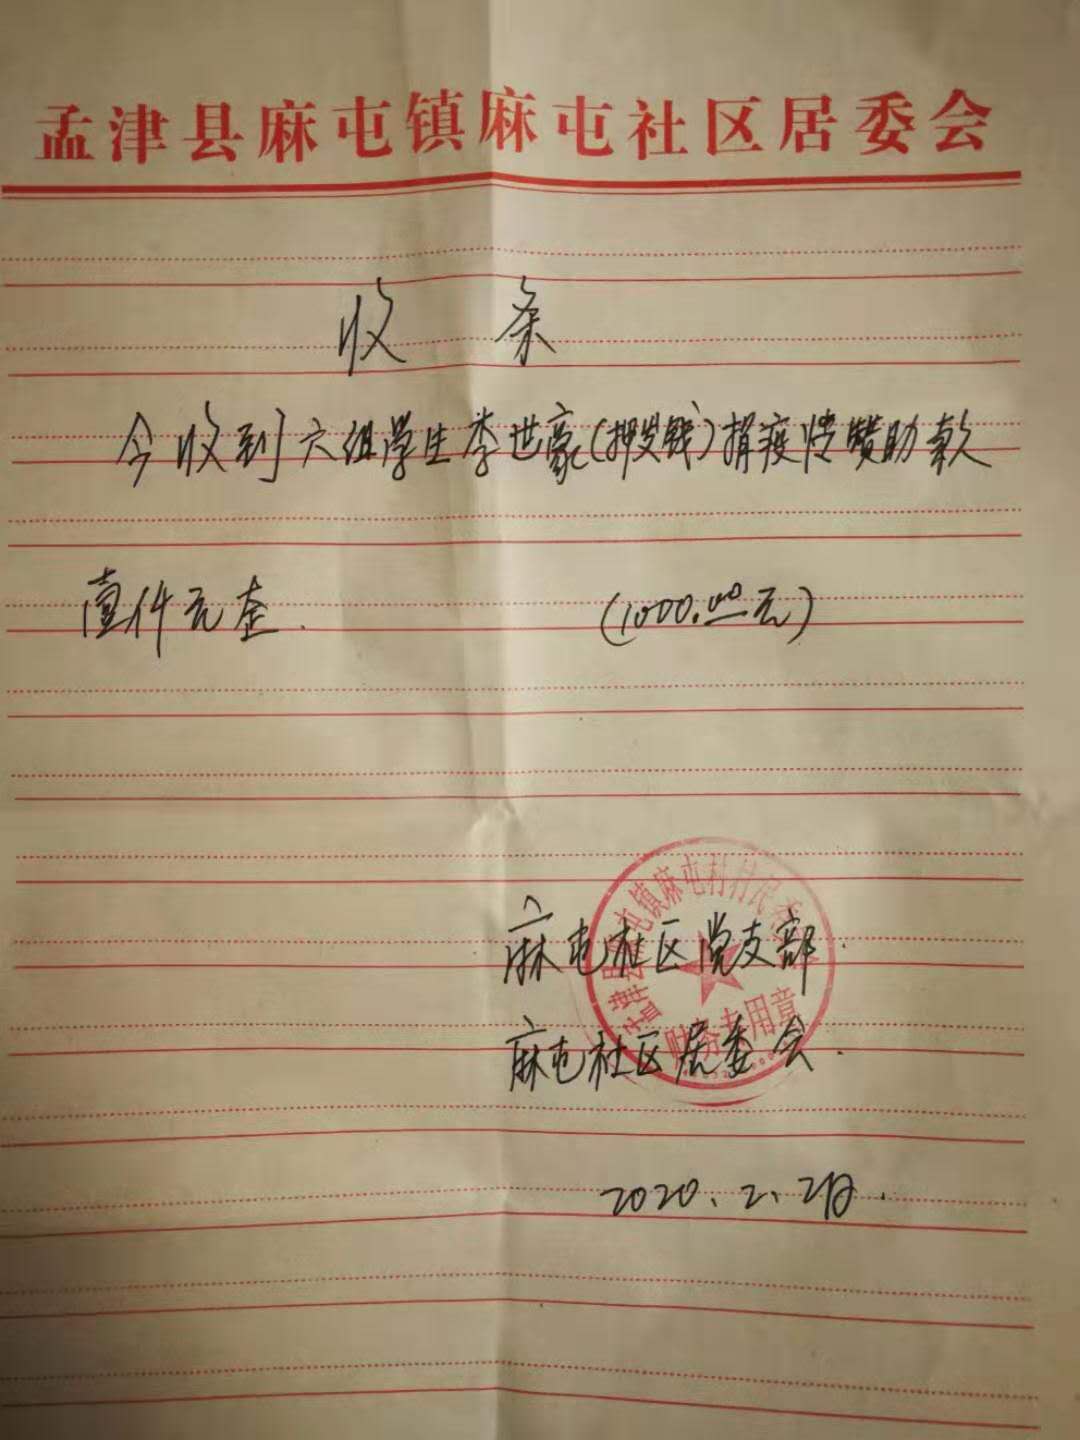 孟津县麻屯镇麻屯社区居委会
收 条
今收到六组学生李世豪(押岁钱)捐疫情赞助款
壹仟元整. (1000.00元)
麻屯社区党支部.
麻屯社区居委会.
2020.2.2日.
孟津县麻屯镇麻屯村村民委员会
财务专用章